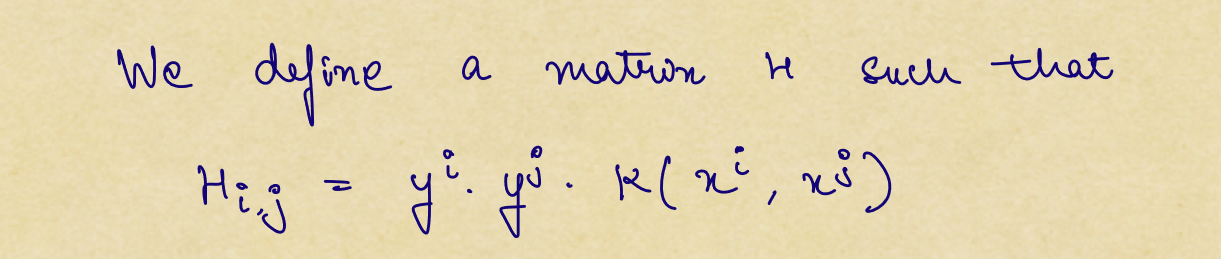 We define a matrix H such that
H_{i,j} = y^i . y^j . K(x^i, x^j)